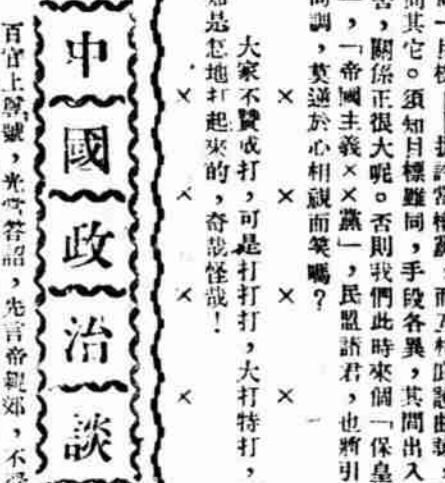 問其它。須知目標雖同，手段各異，其間出入
，關係正很大呢。否則我們此時來個「保皇
」，「帝國主義××黨」，民盟諸君，也將引
同調，莫逆於心相視而笑嗎？
× × × ×
大家不贊成打，可是打打打，大打特打，
是怎地打起來的，奇哉怪哉！
× × × ×
中國政治談
百官上尊號，光武答詔，先言帝親郊，不受